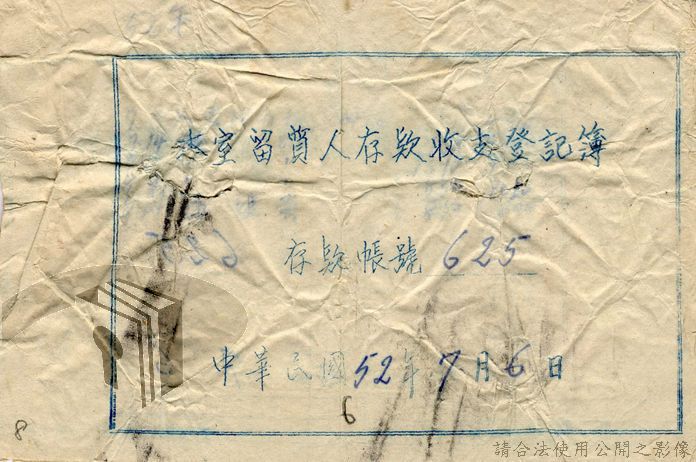 本室留質人存款收支登記簿
存款帳號 625
中華民國52年7月6日
6
8
請合法使用公開之影像